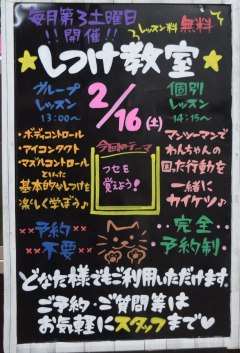 毎月第3土曜日
!!開催!!
レッスン料 無料
★しつけ教室★
グループ
レッスン
13:00〜
2/16(土)
個別
レッスン
14:15〜
・ボディコントロール
・アイコンタクト
・マズルコントロール
といった
基本的なしつけを
楽しく学ぼう♪
今回のテーマ
フセを
覚えよう!
マンツーマンで
わんちゃんの
困った行動を
一緒に
カイケツ♪
予約
不要
完全
予約制
どなた様でもご利用いただけます。
ご予約・ご質問等は
お気軽にスタッフまで♡